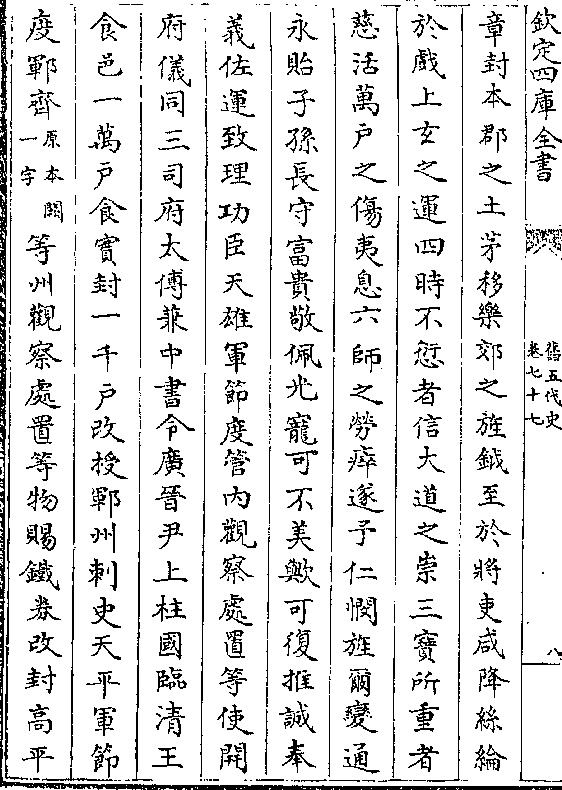 欽定四庫全書
舊五代史
卷七十七
八
章封本郡之土茅移樂郊之旌鉞至於將吏咸降絲綸
於戲上玄之運四時不愆者信大道之崇三寳所重者
慈活萬戸之傷夷息六師之勞瘁遂予仁憫旌爾變通
永貽子孫長守富貴敬佩光寵可不美歟可復推誠奉
義佐運致理功臣天雄軍節度管内觀察處置等使開
府儀同三司府太傅兼中書令廣晉尹上柱國臨清王
食邑一萬戸食實封一千戸改授鄆州刺史天平軍節
度鄆齊原本闕一字等州觀察處置等物賜鐵券改封高平